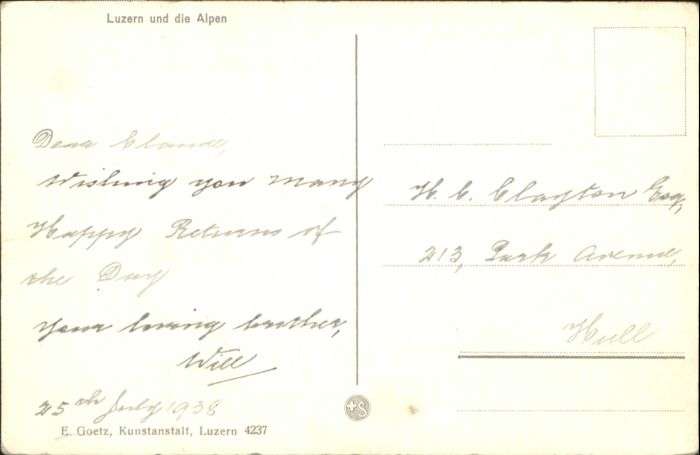 Luzern und die Alpen
Dear Claude,
Wishing you many
Happy Returns of
the Day
Your loving brother,
Will
25th July 1938
E. Goetz, Kunstanstalt, Luzern 4237
H. C. Clayton Esq,
213, Park Avenue,
Hull